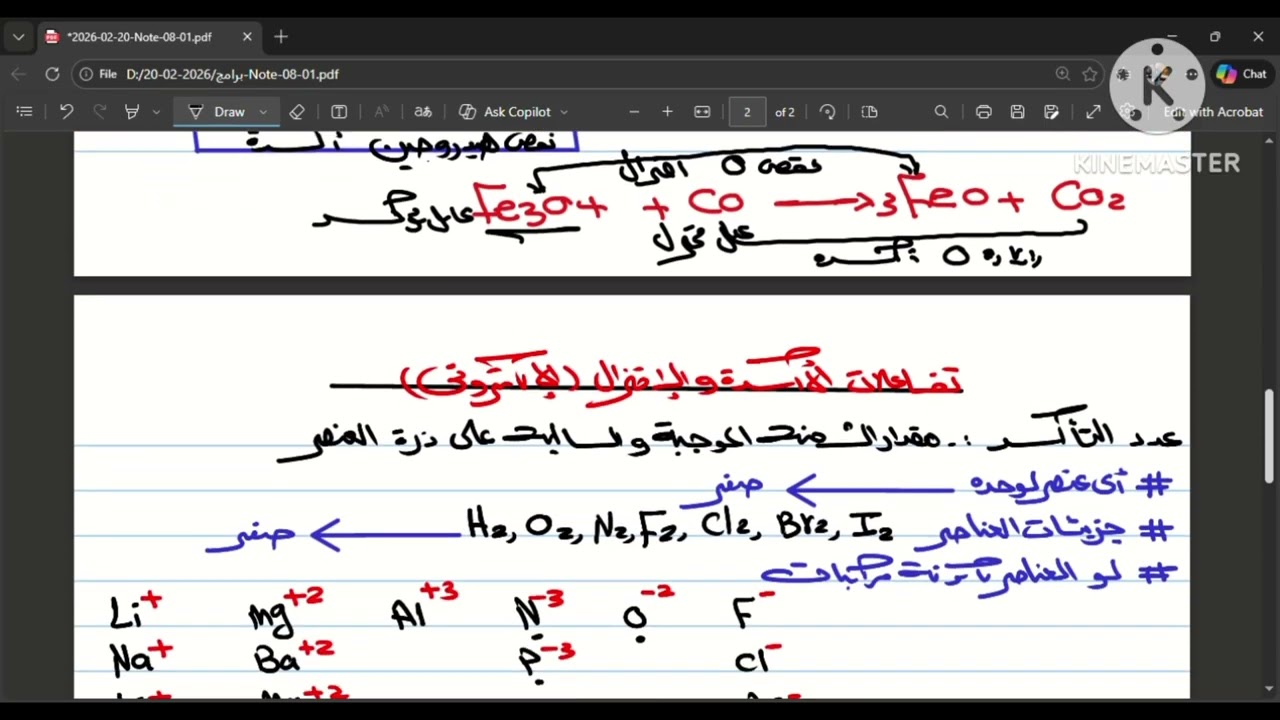 *2026-02-20-Note-08-01.pdf
File D:/20-02-2026/برامج-Note-08-01.pdf
Chat
Draw
Ask Copilot
2 of 2
Edit with Acrobat
KINEMASTER
نقص هيدروجين أكسدة
نقص O اختزال
عامل مؤكسد Fe3O4 + CO → 3FeO + CO2
عامل مختزل
زيادة O أكسدة
تفاعلات الأكسدة والإختزال (الإلكتروني)
عدد التأكسد :. مقدار الشحنة الموجبة والسالبة على ذرة العنصر
# أي عنصر لوحده ← صفر
# جزيئات العناصر H2, O2, N2, F2, Cl2, Br2, I2 ← صفر
# لو العناصر مكونة مركبات
Li+ Mg+2 Al+3 N-3 O-2 F-
Na+ Ba+2 P-3 Cl-